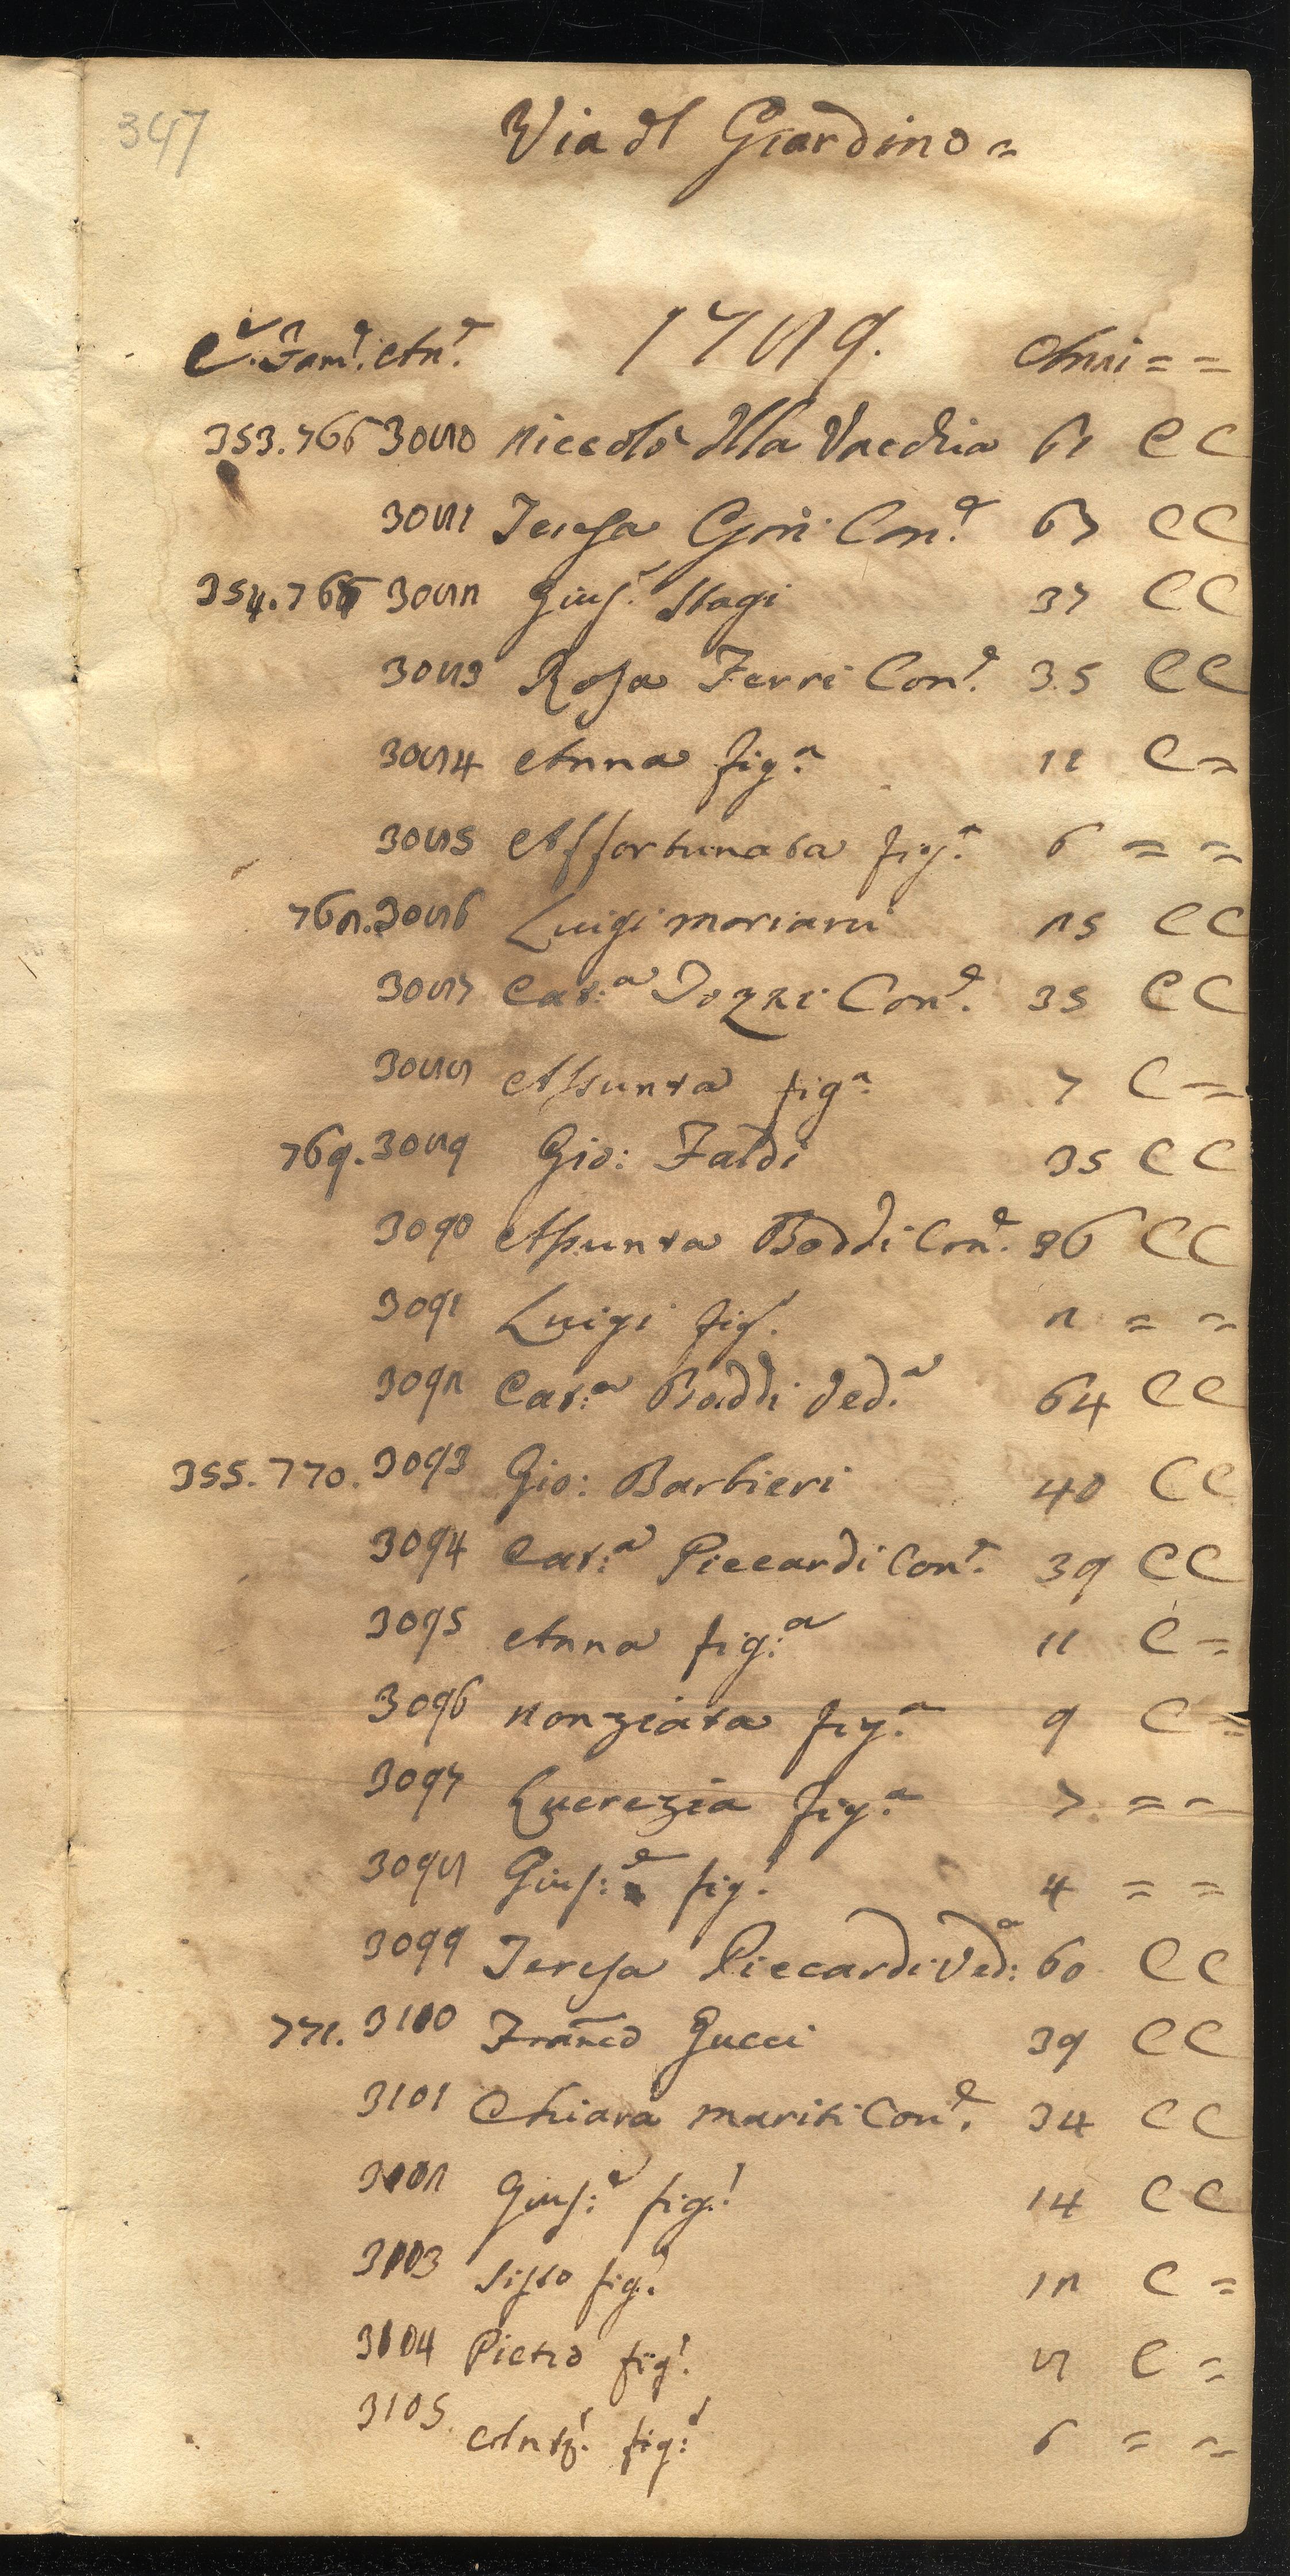 347
Via dl Giardino =
C.e Fam.e An.e 1789. Anni = =
353.766 3080 Niccolò dlla Vacchia 61 C C
3081 Teresa Gori Con.e 67 C C
354.767 3082 Gius.e Stagi 37 C C
3083 Rosa Ferri Con.e 35 C C
3084 Anna fig.a 11 C =
3085 Affortunata fig.a 6 = =
768. 3086 Luigi Mariani 25 C C
3087 Cat:a Tozzi Con.e 35 C C
3088 Assunta fig.a 7 C =
769. 3089 Gio: Faldi 35 C C
3090 Assunta Boddi Con.e 36 C C
3091 Luigi fig.o 2 = =
3092 Cat:a Boddi Ved.a 64 C C
355. 770. 3093 Gio: Barbieri 40 C C
3094 Cat:a Piccardi Con.e 39 C C
3095 Anna fig:a 11 C =
3096 Nonziata fig.a 9 C =
3097 Lucrezia fig.a 7 = =
3098 Gius:e fig.o 4 = =
3099 Teresa Piccardi Ved:a 60 C C
771. 3100 Franco Gucci 39 C C
3101 Chiara Mariti Con.e 34 C C
3102 Gius:e fig.o 14 C C
3103 Sisto fig.o 12 C =
3104 Pietro fig.o 8 C =
3105. Ant.o fig:o 6 = =